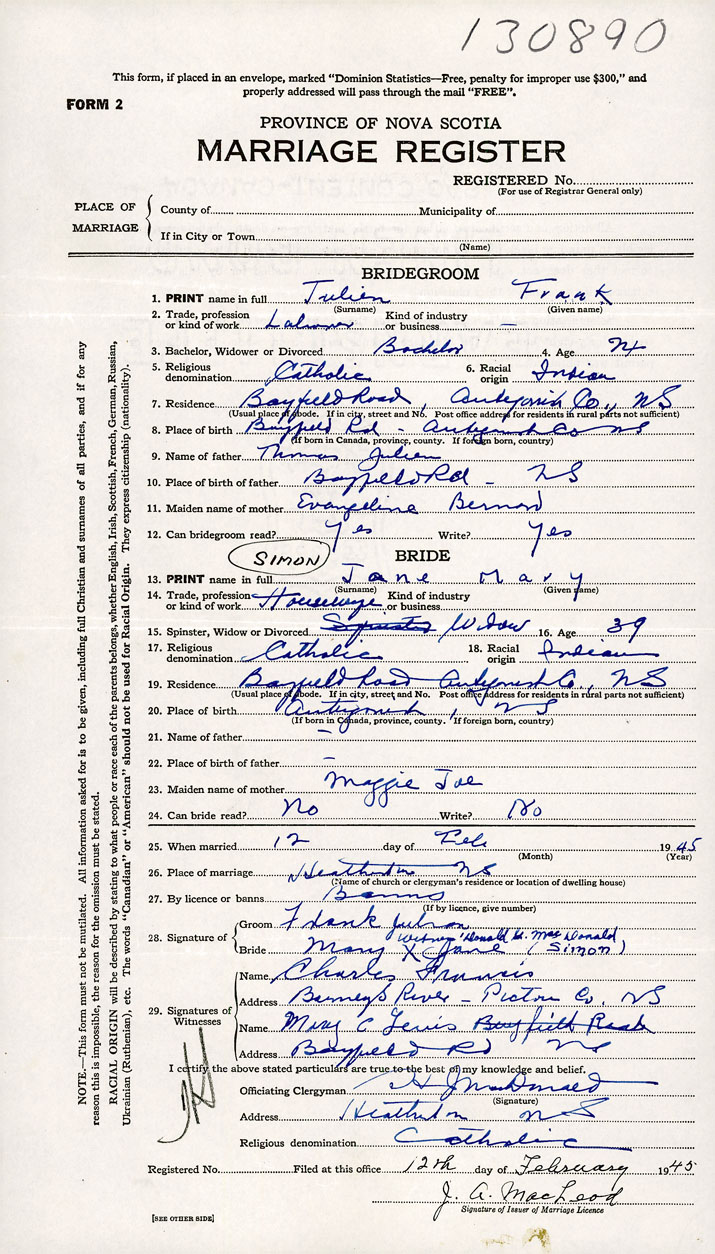 130890
This form, if placed in an envelope, marked "Dominion Statistics—Free, penalty for improper use $300," and
properly addressed will pass through the mail "FREE".
FORM 2
PROVINCE OF NOVA SCOTIA
MARRIAGE REGISTER
REGISTERED No.
(For use of Registrar General only)
PLACE OF MARRIAGE
County of Municipality of
If in City or Town
(Name)
BRIDEGROOM
1. PRINT name in full Julien Frank
(Surname) (Given name)
2. Trade, profession or kind of work Labourer Kind of industry or business —
3. Bachelor, Widower or Divorced Bachelor 4. Age
5. Religious denomination Catholic 6. Racial origin Indian
7. Residence Bayfield Road, Antigonish Co., NS
(Usual place of abode. If in city, street and No. Post office address for residents in rural parts not sufficient)
8. Place of birth Bayfield Rd - Antigonish Co NS
(If born in Canada, province, county. If foreign born, country)
9. Name of father Thomas Julien
10. Place of birth of father Bayfield Rd - NS
11. Maiden name of mother Evangeline Bernard
12. Can bridegroom read? Yes Write? Yes
SIMON BRIDE
13. PRINT name in full Jane Mary
(Surname) (Given name)
14. Trade, profession or kind of work Housewife Kind of industry or business
15. Spinster, Widow or Divorced Spinster Widow 16. Age 39
17. Religious denomination Catholic 18. Racial origin Indian
19. Residence Bayfield Road Antigonish Co., NS
(Usual place of abode. If in city, street and No. Post office address for residents in rural parts not sufficient)
20. Place of birth Antigonish, NS
(If born in Canada, province, county. If foreign born, country)
21. Name of father —
22. Place of birth of father —
23. Maiden name of mother Maggie Joe
24. Can bride read? No Write? No
25. When married 12 day of Feb 1945
(Month) (Year)
26. Place of marriage Heatherton NS
(Name of church or clergyman's residence or location of dwelling house)
27. By licence or banns Banns
(If by licence, give number)
28. Signature of
Groom Frank Julien
Witness Donald MacDonald
Bride Mary X Jane (Simon)
29. Signatures of Witnesses
Name Charles Francis
Address Barneys River - Pictou Co, NS
Name Mary C Lewis Bayfield Road
Address Bayfield Rd NS
I certify the above stated particulars are true to the best of my knowledge and belief.
Officiating Clergyman MacDonald
(Signature)
Address Heatherton NS
Religious denomination Catholic
Registered No. Filed at this office 12th day of February 1945
J. A. MacLeod
Signature of Issuer of Marriage Licence
[SEE OTHER SIDE]
NOTE.—This form must not be mutilated. All information asked for is to be given, including full Christian and surnames of all parties, and if for any
reason this is impossible, the reason for the omission must be stated.
RACIAL ORIGIN will be described by stating to what people or race each of the parents belongs, whether English, Irish, Scottish, French, German, Russian,
Ukrainian (Ruthenian), etc. The words "Canadian" or "American" should not be used for Racial Origin. They express citizenship (nationality).